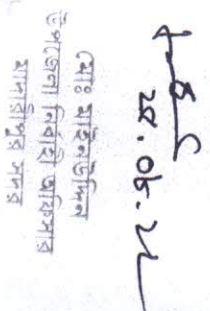 ২৫.০৮.২২
মোঃ মাইনউদ্দিন
উপজেলা নির্বাহী অফিসার
মাদারীপুর সদর